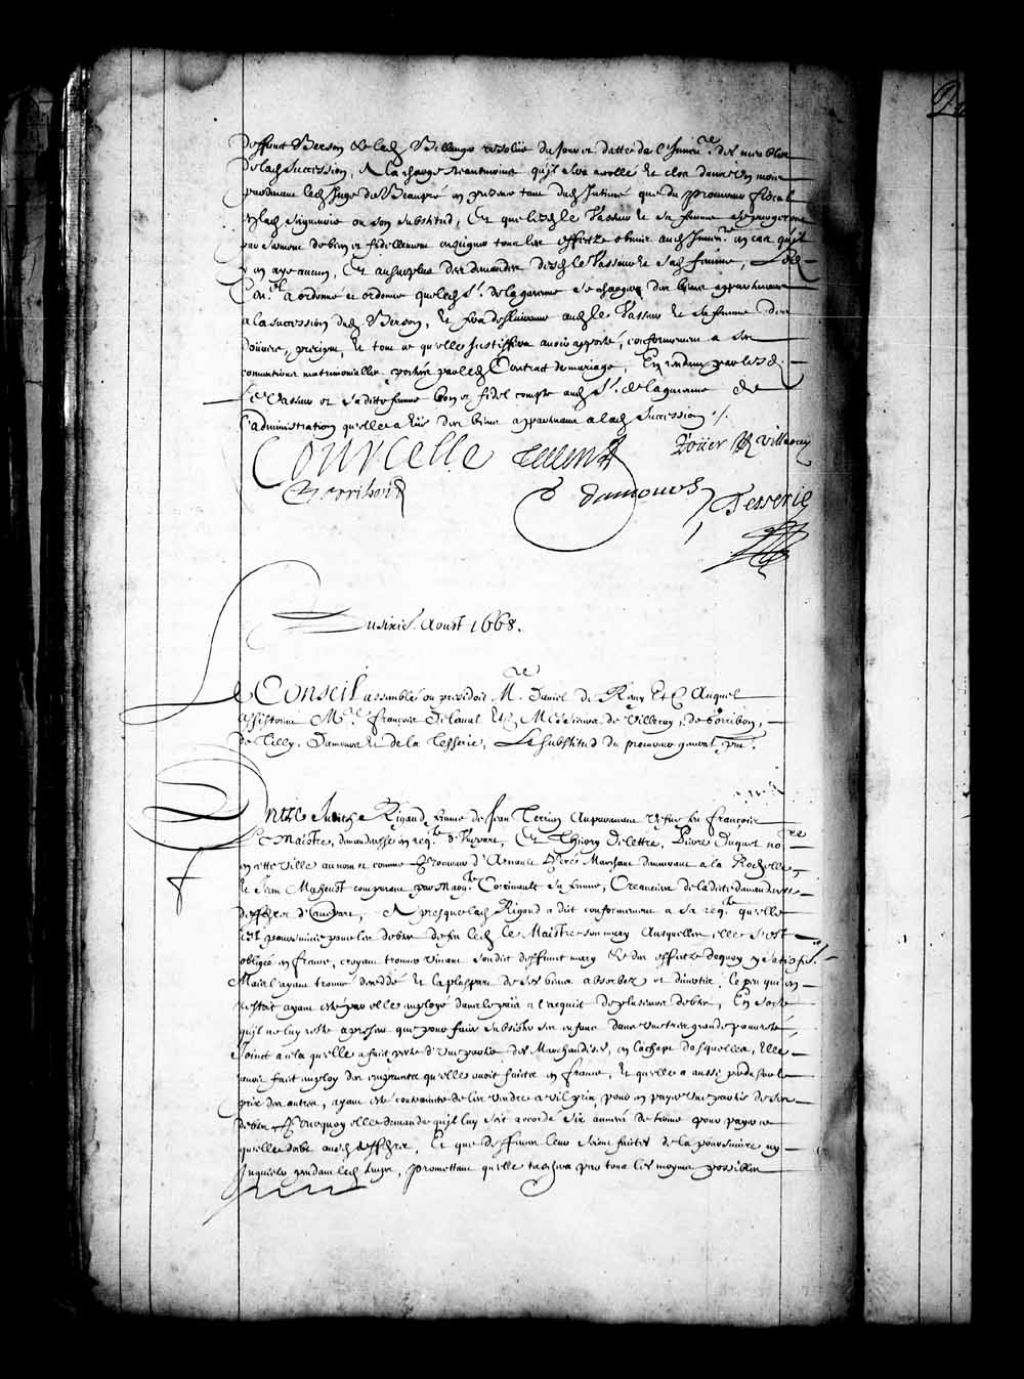 deffunct Berson & lad. Bellanger resolüe du jour et datte de l'Inven.re des meubles
de lad. succession, A la charge neantmoins qu'il sera arresté & clos dans un mois
pardevant led. Juge de Beaupré en presence tant dud. Intimé que du procureur fiscal
en lad. seigneurie ou son substitud, Et que lesd. le Vasseur & sa femme se purgeront
par serment de bien et fidellement enseigner tous les effects obmis aud. Inven.re en cas qu'il
y en aye aucun, Et au surplus des demandes desd. le Vasseur & sad. femme, Led.
Con.el a ordonné et ordonne que led. s.r de la garenne se chargera des biens appartenans
a la succession dud. Berson, & fera delivrance aud. le Vasseur & sa femme des
doüaire, preciput, & tout ce qu'elle justiffiera avoir apporté, conformement a ses
conventions matrimonialles portées par led. Contract de mariage, En rendant par lesd.
Le Vasseur et sa ditte femme bon et fidel compte aud. s.r de la garenne de
l'administration qu'elle a eüe des biens appartenans a lad. succession ./.
Courcelle Talon Roüer de Villeray
Gorribon damours J Tesserie
Du sixie.e Aoust 1668.
Le Conseil assemblé ou presidoit M.re Daniel de Remy Et.c Auquel
assistoient M.re françois de laval Et.c Messieurs de Villeray, de Gorribon,
de Tilly, Damours & de la Tesserie, Le substitud du procureur general pnt.
Entre Judith Rigaud femme de Jean Terrien auparavant vefve feu françois
Le Maistre, demanderesse en req.te d'une part, Et Thierry Delettre, Pierre Duquet no.re
en cette ville au nom et comme Procureur d'Arnault Peré Marchand demeurant a la Rochelle
& Jean Maheust comparant par Marg.te Corrivault sa femme, Creanciers de la ditte demanderesse
deffend.rs d'autre part, A presque lad. Rigaud a dit conformement a sa req.te qu'elle
est poursuivie pour les debtes de feu led. le Maistre son mary Ausquelles elle s'est
obligée en france, croyant trouver vivant son dit deffunct mary & des effects dequoy y satisf.re
Mais l'ayant trouvé deceddé & la pluspart de ses biens absorbez et divertis, le peu qui en
restoit ayant esté par elle employé dans le païs a l'acquit de plusieurs debtes, En sorte
qu'il ne luy reste a present que pour faire subsister ses enfans dans une tres grande pauvreté,
Joinct a cela qu'elle a fait perte d'une partie des Marchandises, en l'achapt desquelles, Elle
avoit fait employ des emprunts qu'elle avoit faictz en france, & qu'elle a aussi perdu sur le
prix des autres, ayant esté contrainte de les vendre a vil prix, pour en payer une partie de ses
debtes Pourquoy elle demande qu'il luy soit accordé six années de terme pour payer ce
qu'elle doibt ausd. deffend.rs, Et que deffences leur soient faictes de la poursuivre ny
Inquieter pendant led. temps, promettant qu'elle taschera par tous les moyens possibles